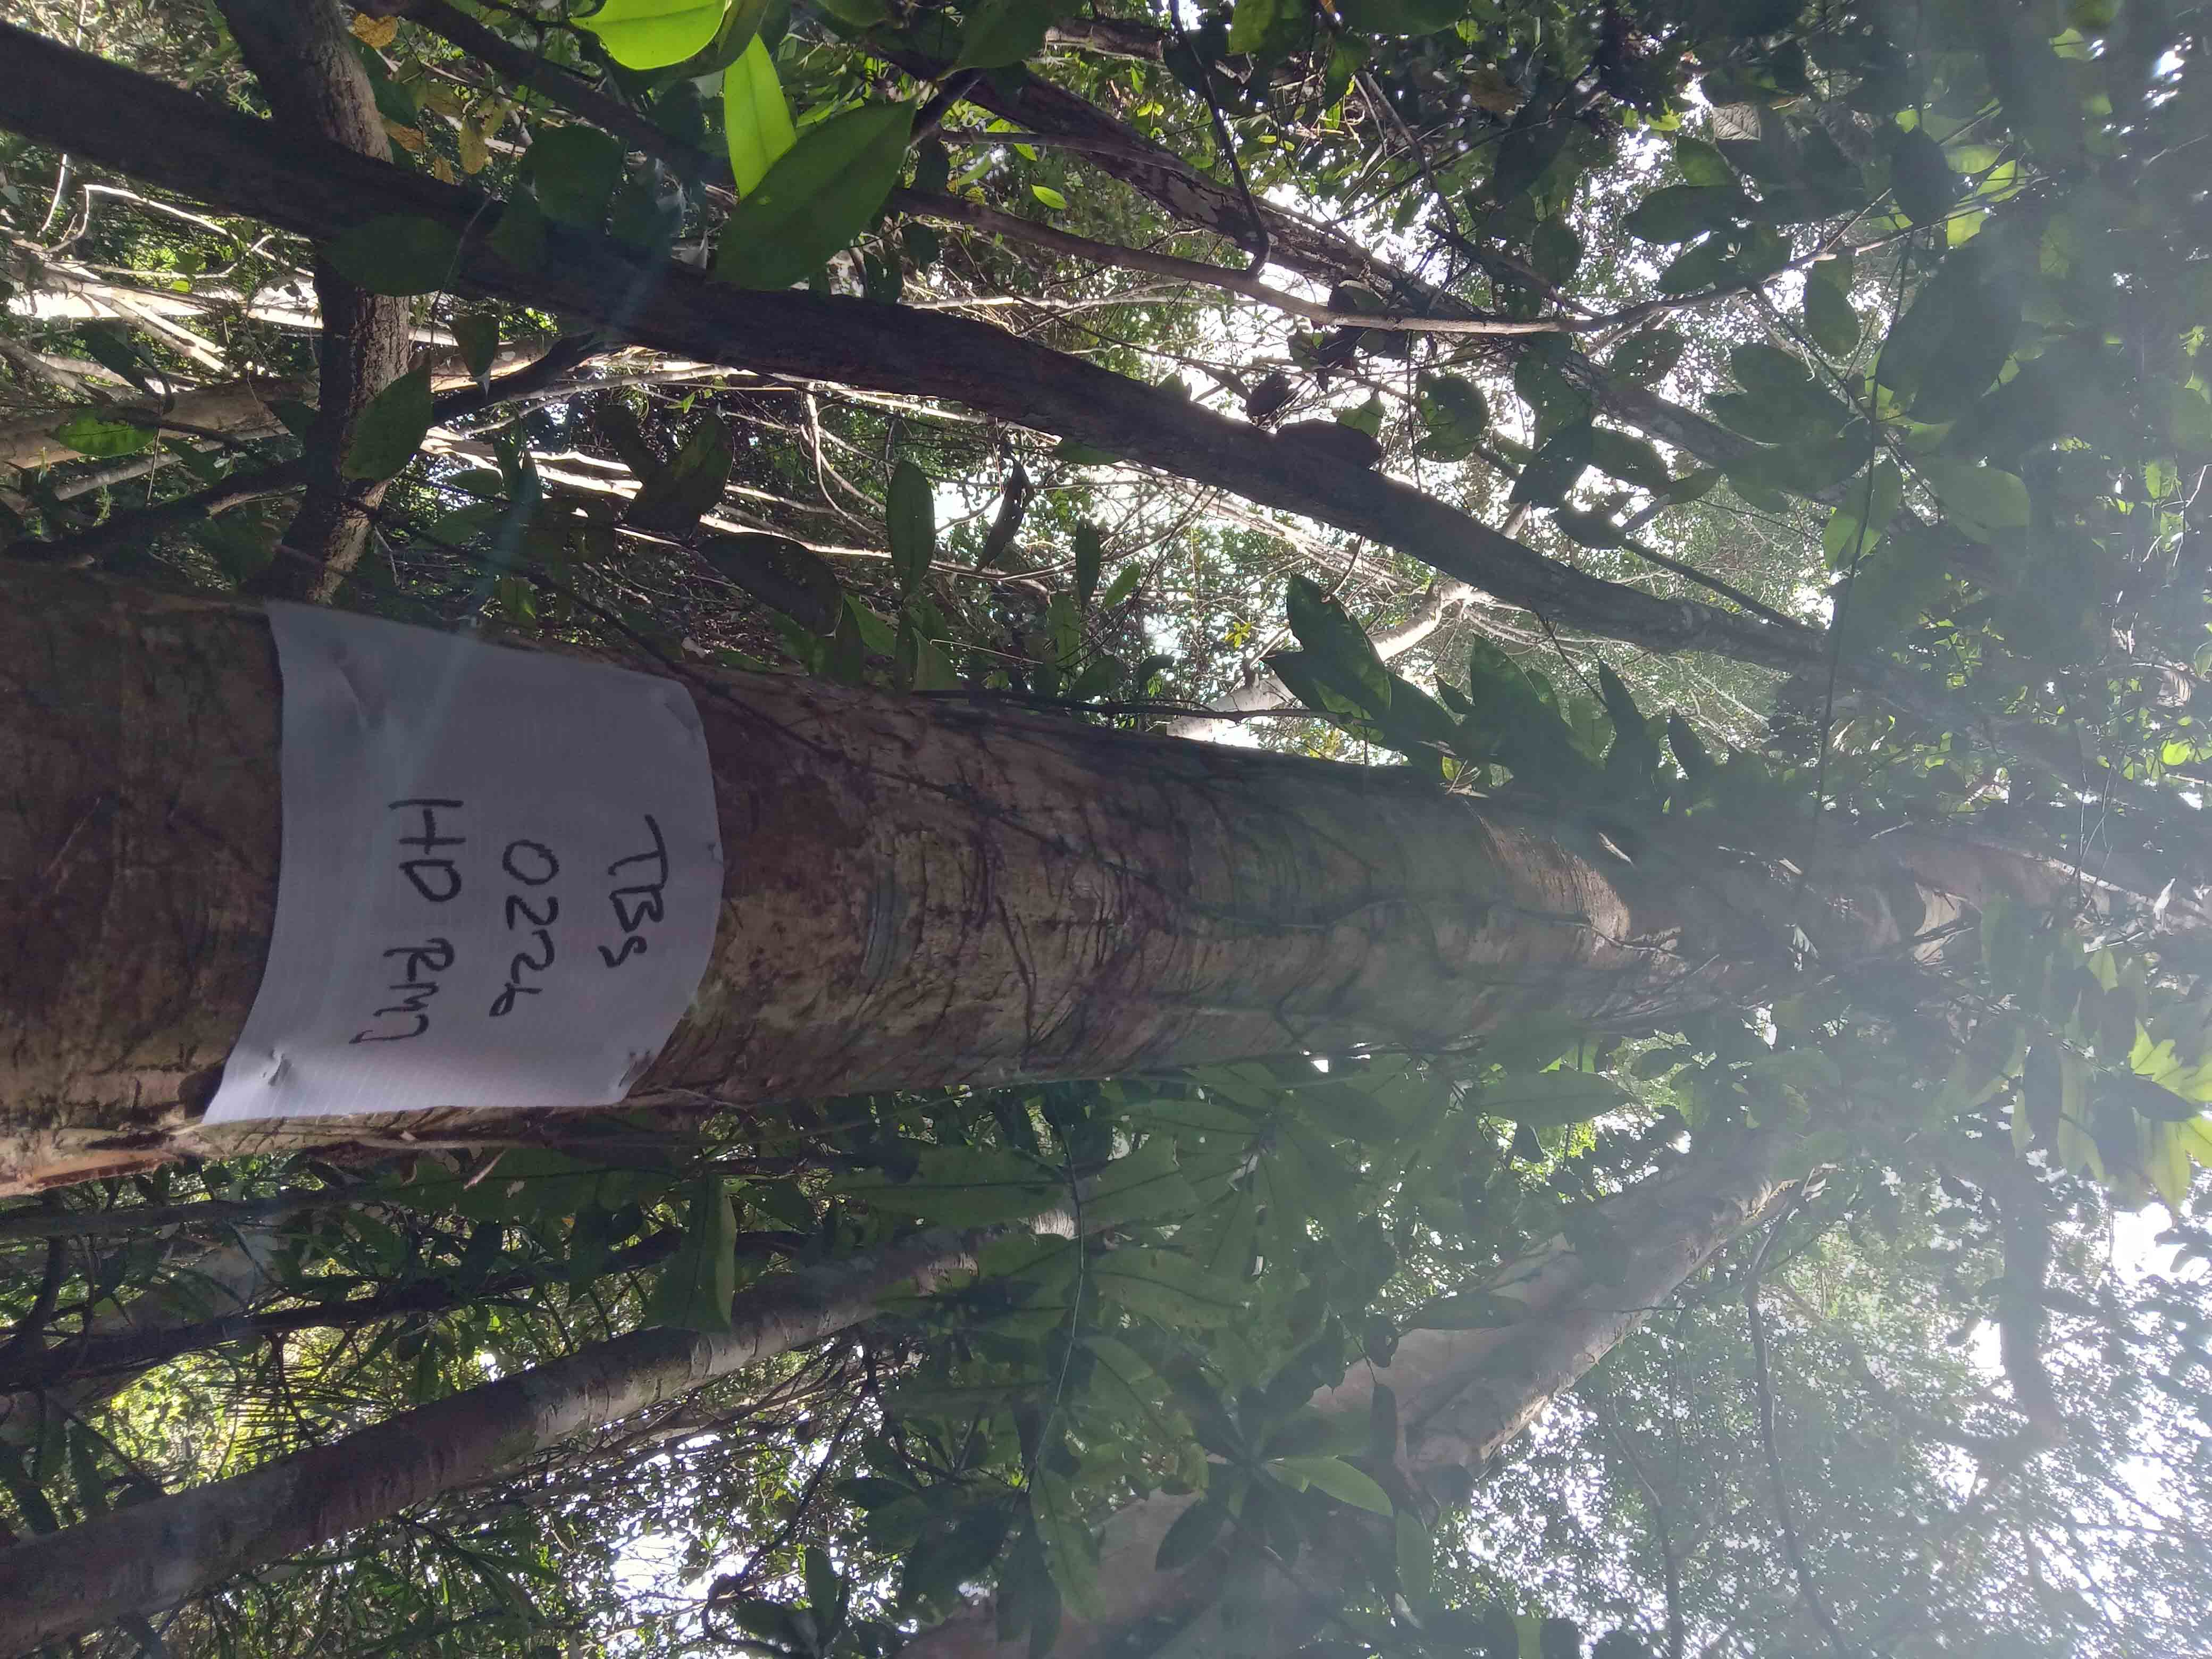 TBS
0226
HD RMJ